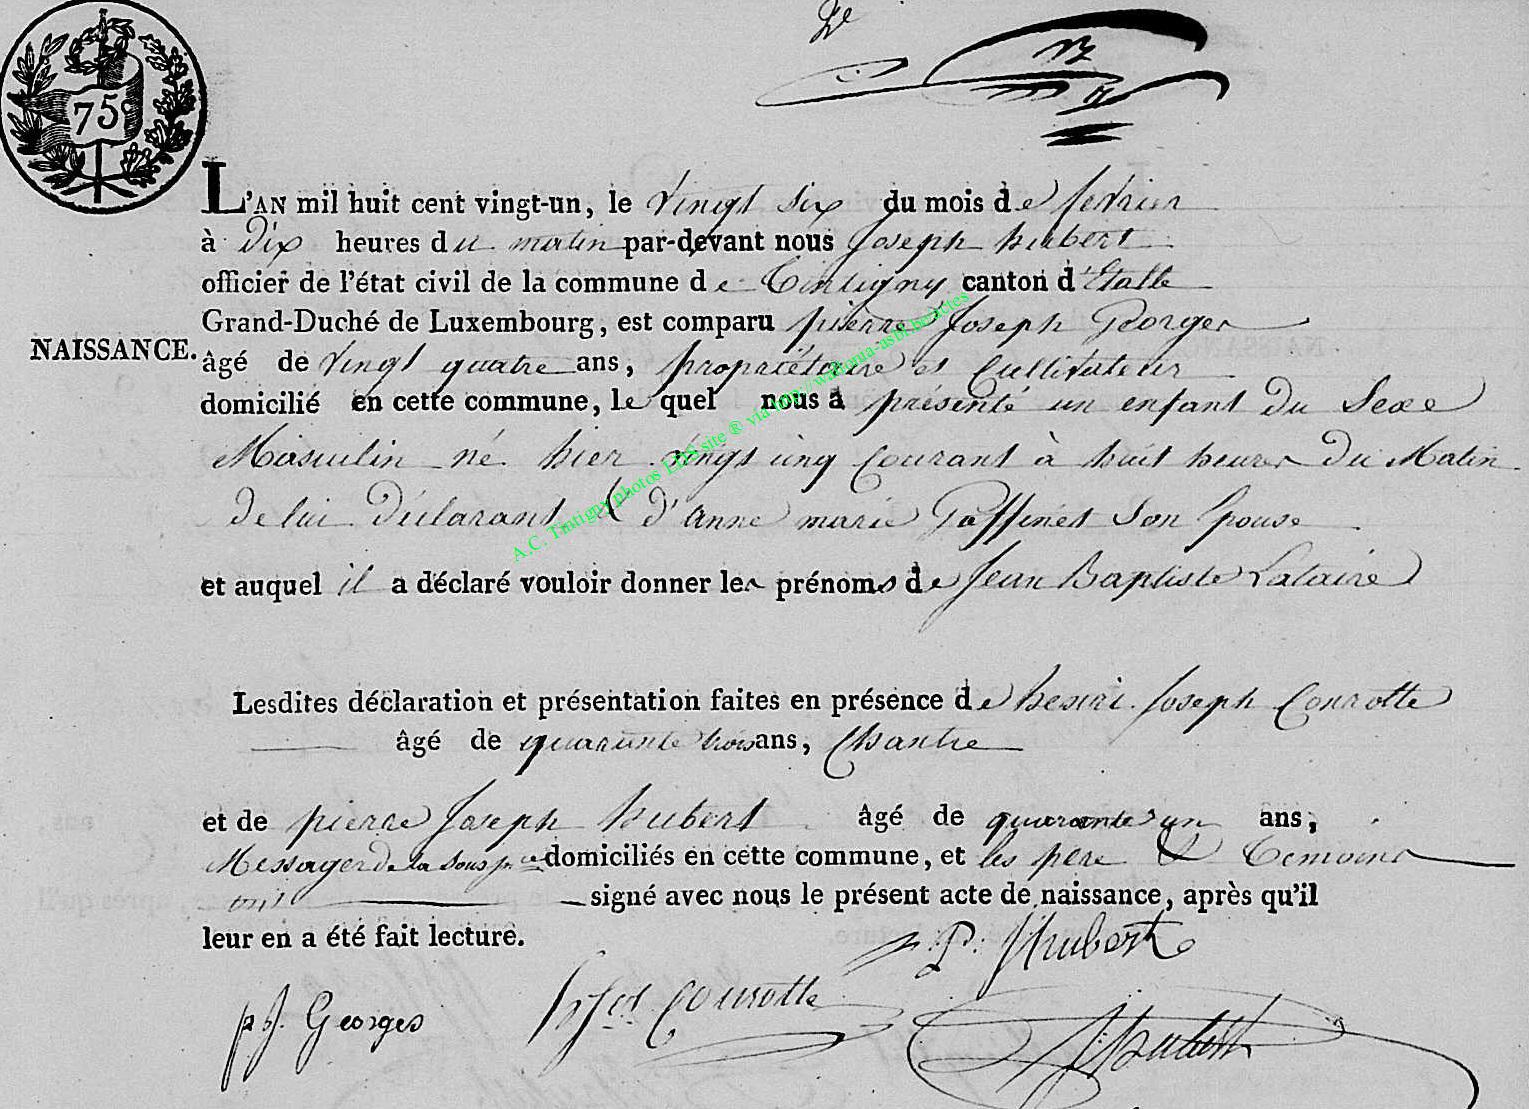 75c
L'AN mil huit cent vingt-un, le vingt six du mois de fevrier
à dix heures du matin par-devant nous Joseph hubert
officier de l'état civil de la commune de Tintigny canton d'Etalle
Grand-Duché de Luxembourg, est comparu pierre Joseph Gorges
NAISSANCE.
âgé de vingt quatre ans, propriétaire et Cultivateur
domicilié en cette commune, le quel nous a présenté un enfant du Sexe
Masculin né hier vingt cinq Courant à huit heures du Matin
de lui Déclarant & d'anne marie Son Epouse
et auquel il a déclaré vouloir donner les prénoms de Jean Baptiste
Lesdites déclaration et présentation faites en présence de henri Joseph Courotte
âgé de quarante trois ans, Chantre
et de pierre Joseph hubert âgé de quarante un ans,
Messager de la Sous domiciliés en cette commune, et les pere & Temoins
ont signé avec nous le présent acte de naissance, après qu'il
leur en a été fait lecture.
P. J Hubert
pJ. Georges
hJ Courotte
J Hubert
A.C. Tintigny photos LDS site ® via http://wallonia-asbl.be/actes